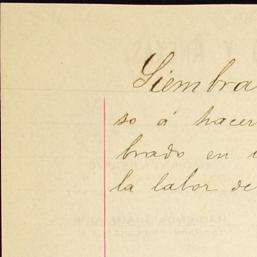 Siembra
so á hacer
brado en
la labor de